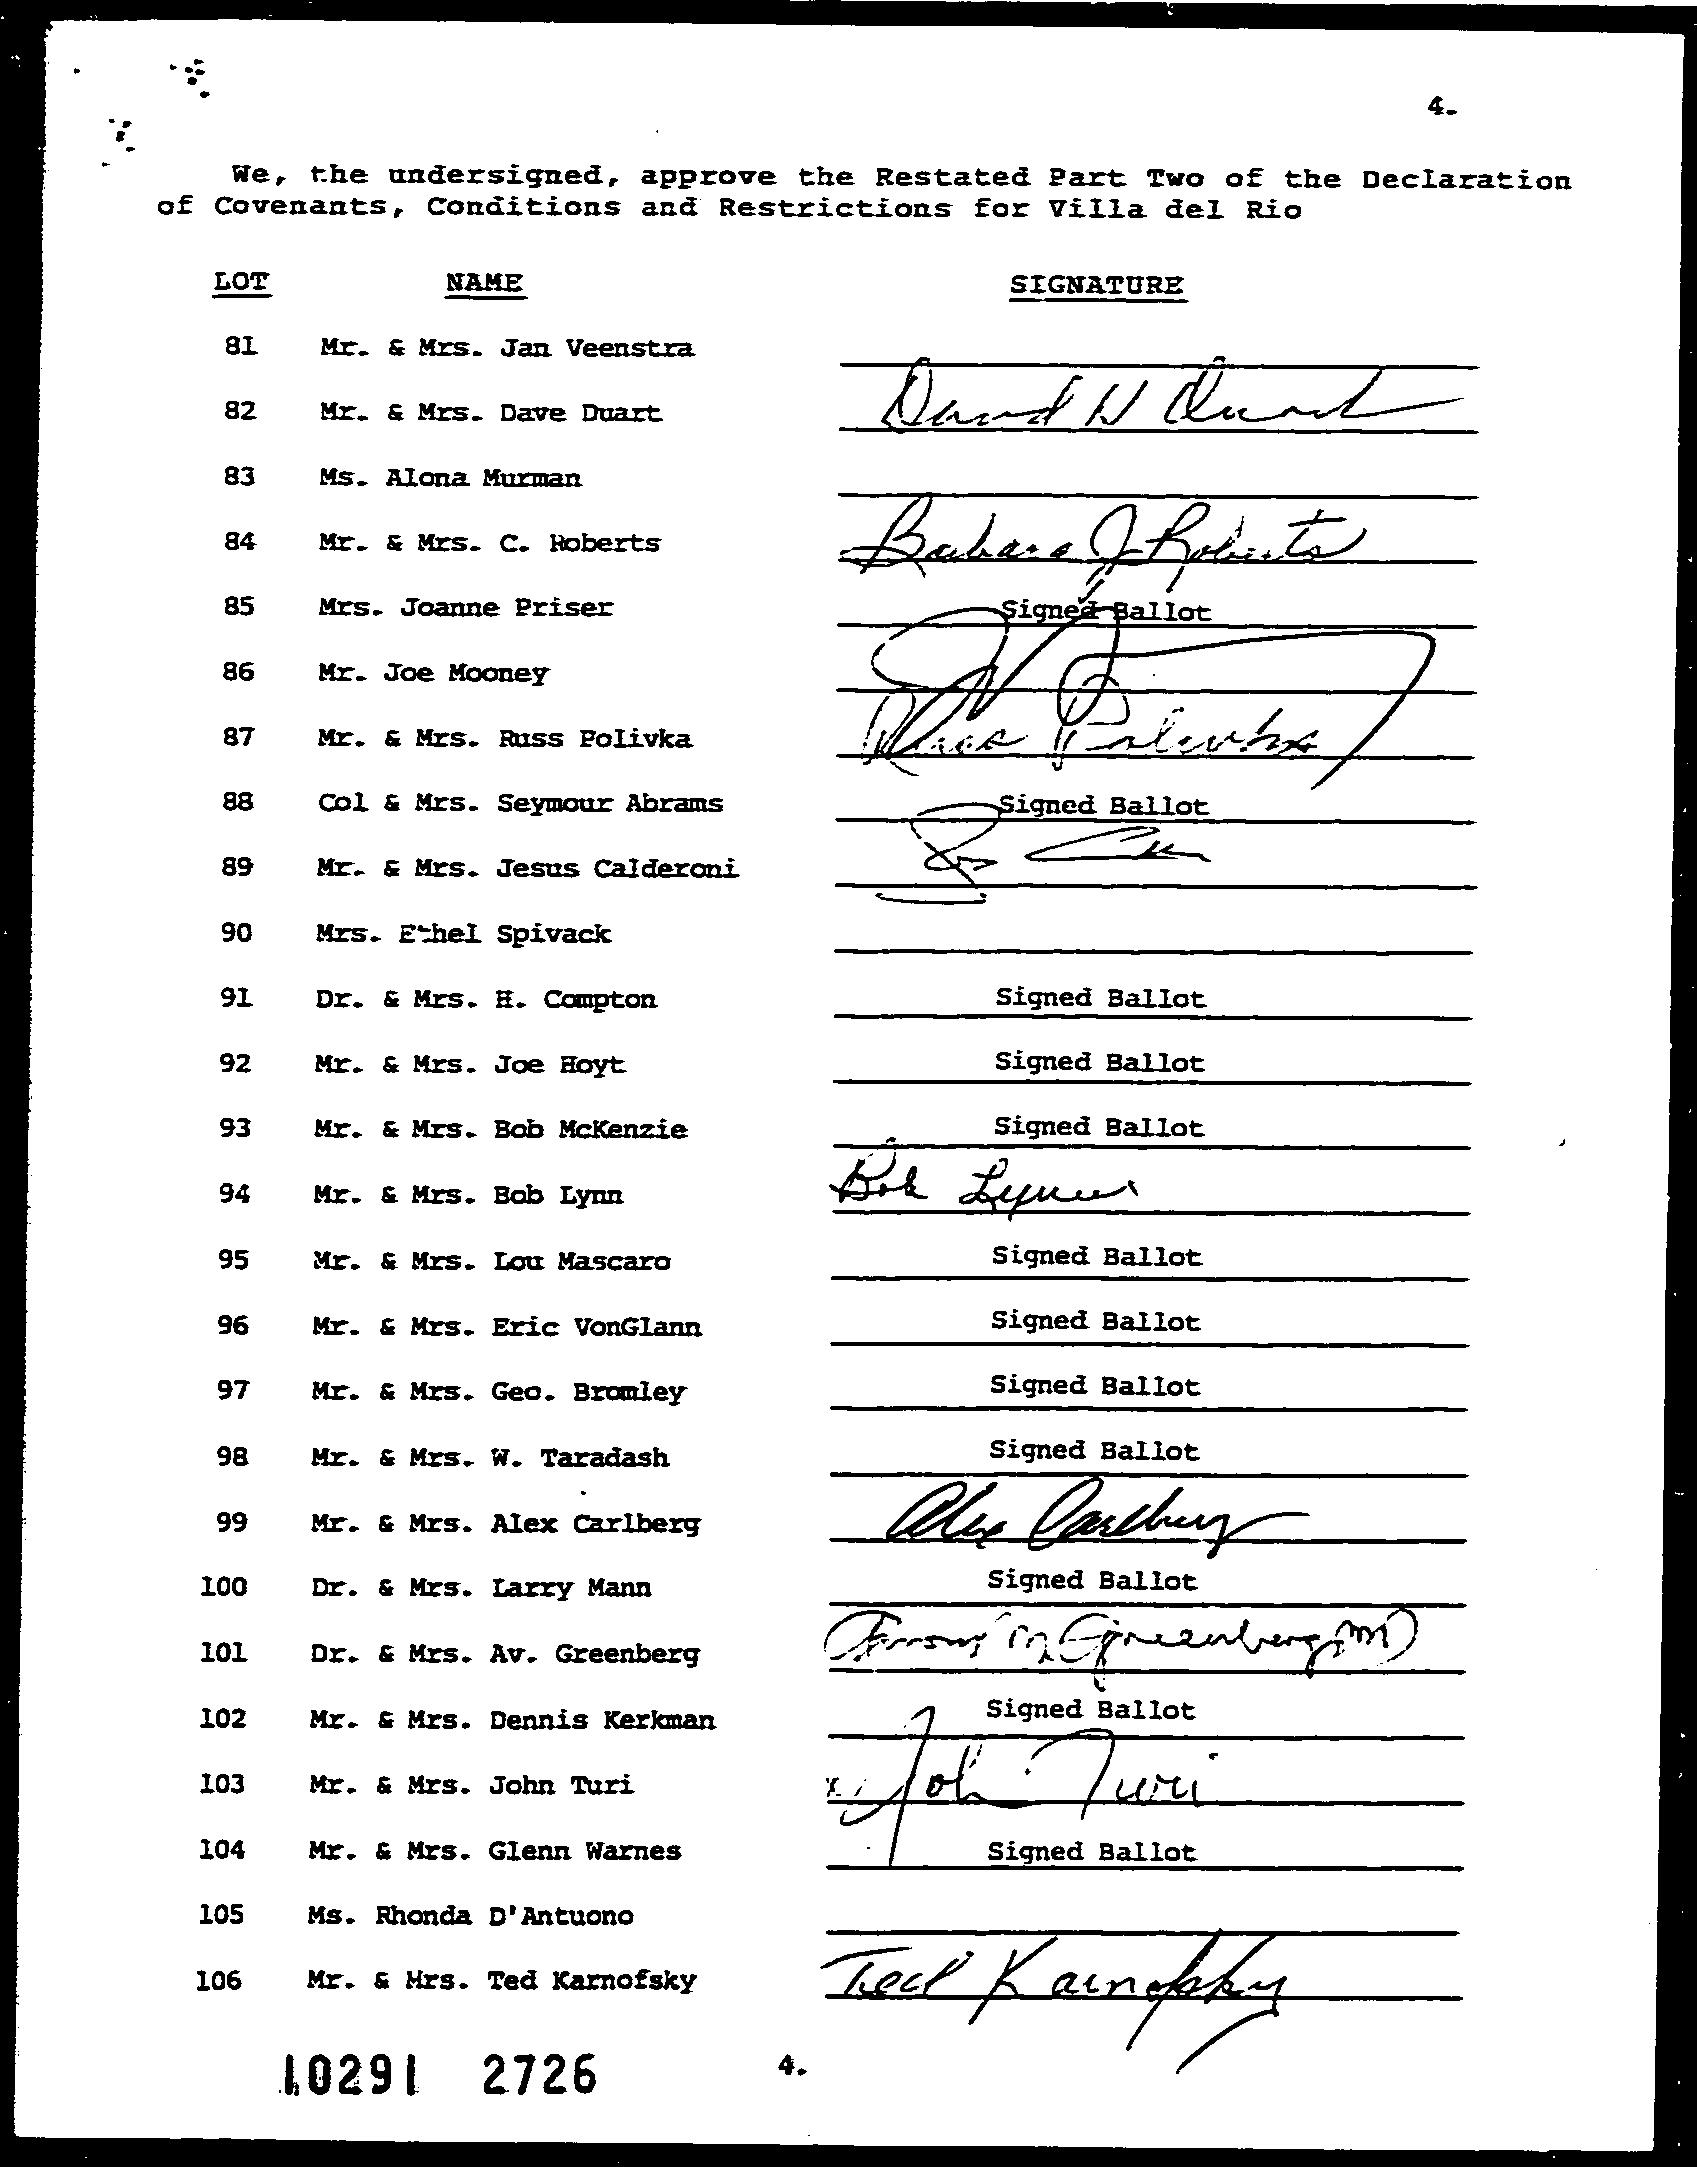 4.
We, the undersigned, approve the Restated Part Two of the Declaration
of Covenants, Conditions and Restrictions for Villa del Rio
LOT NAME SIGNATURE
81 Mr. & Mrs. Jan Veenstra
82 Mr. & Mrs. Dave Duart David W Duart
83 Ms. Alona Murman
84 Mr. & Mrs. C. Roberts Barbara J Roberts
85 Mrs. Joanne Priser Signed Ballot
86 Mr. Joe Mooney
87 Mr. & Mrs. Russ Polivka Russ Polivka
88 Col & Mrs. Seymour Abrams Signed Ballot
89 Mr. & Mrs. Jesus Calderoni
90 Mrs. Ethel Spivack
91 Dr. & Mrs. H. Compton Signed Ballot
92 Mr. & Mrs. Joe Hoyt Signed Ballot
93 Mr. & Mrs. Bob McKenzie Signed Ballot
94 Mr. & Mrs. Bob Lynn Bob Lynn
95 Mr. & Mrs. Lou Mascaro Signed Ballot
96 Mr. & Mrs. Eric VonGlann Signed Ballot
97 Mr. & Mrs. Geo. Bromley Signed Ballot
98 Mr. & Mrs. W. Taradash Signed Ballot
99 Mr. & Mrs. Alex Carlberg Alex Carlberg
100 Dr. & Mrs. Larry Mann Signed Ballot
101 Dr. & Mrs. Av. Greenberg M Greenberg MD
102 Mr. & Mrs. Dennis Kerkman Signed Ballot
103 Mr. & Mrs. John Turi x John Turi
104 Mr. & Mrs. Glenn Warnes Signed Ballot
105 Ms. Rhonda D'Antuono
106 Mr. & Mrs. Ted Karnofsky Ted Karnofsky
10291 2726 4.